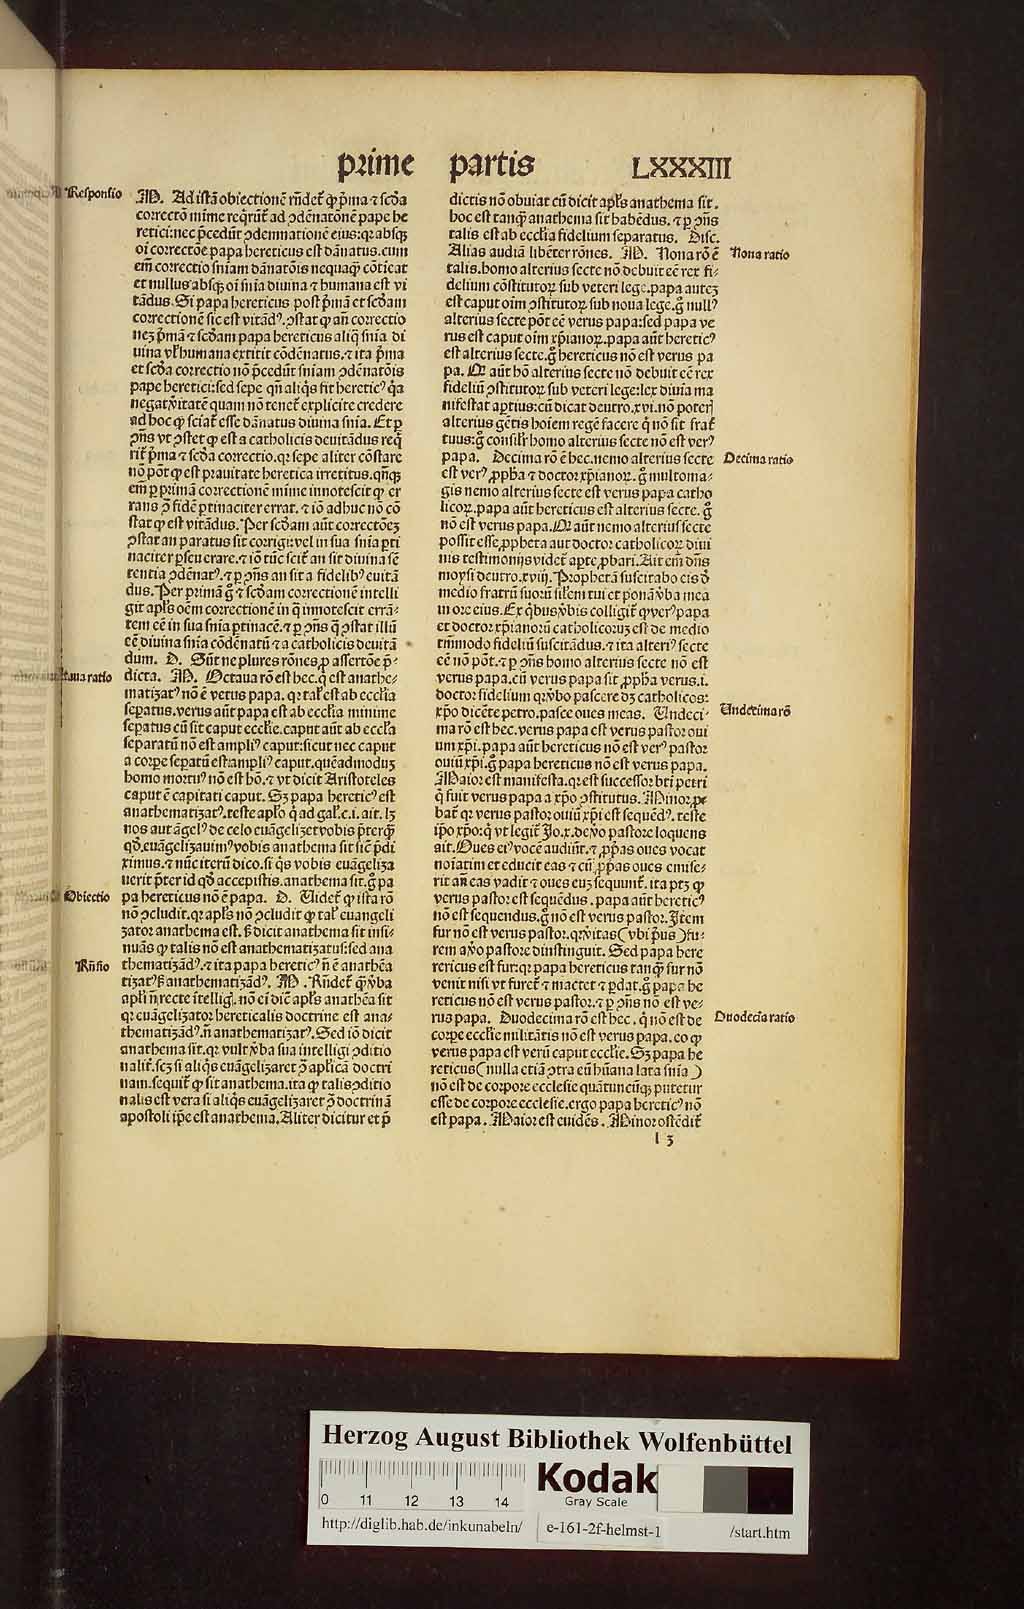 prime partis LXXXIII
Responsio
M. Ad istā obiectionē rñdet̄ ꝙ p̄ma ⁊ scd̄a
correctō mīme reqͥrūt ad ꝯdēnatōnē pape he
retici: nec p̄cedūt ꝯdemnationē eius: qꝛ absqꝫ
oī correctōe papa hereticus est dānatus. cum
em̄ correctio sniam dānatōis nequaqͣꝫ cōtīcat
et nullus absqꝫ oī snīa diuina ⁊ humana est vi
tādus. Si papa hereticus post p̄mā et scd̄am
correctionē sic est vitādꝰ. ꝯstat ꝙ añ correctio
neꝫ p̄mā ⁊ scd̄am papa hereticus aliqͣ snīa di
uina vl̓ humana extitit cōdēnatus. ⁊ ita p̄ma
et scd̄a correctio nō p̄cedūt sniam ꝯdēnatōis
pape heretici: sed sepe qñ aliqͥs fit hereticꝰ qͥa
negat v̓itatē quam nō tenet̄ explicite credere
ad hoc ꝙ sciat̄ esse dānatus diuina snīa. Et ꝑ
ꝯñs vt ꝯstet ꝙ est a catholicis deuitādus reqͥ
rit̄ p̄ma ⁊ scd̄a correctio. qꝛ sepe aliter cōstare
nō pōt ꝙ est prauitate heretica irretitus. qñqꝫ
em̄ ꝑ primā correctionē mīme innotescit ꝙ er
rans ꝯ̄ fidē ꝑtinaciter errat. ⁊ iō adhuc nō cō
stat ꝙ est vitādus. Per scd̄am aūt correctōeꝫ
ꝯstat an paratus sit corrigi: vel in sua snīa ꝑti
naciter ꝑseuerare. ⁊ iō tūc scit̄ an sit diuina sē
tentia ꝯdēnatꝰ. ⁊ ꝑ ꝯñs an sit a fidelibꝰ euitā
dus. Per primā gͦ ⁊ scd̄am correctionē intelli
git apl̓s oēm correctionē in qͣ innotescit errā-
tem eē in sua snīa ꝑtinacē. ⁊ ꝑ ꝯñs qͣ ꝯstat illū
eē diuina snīa cōdēnatū ⁊ a catholicis deuitā
dum. D. Sūt ne plures rōnes ꝓ assertōe p̄-
taua ratio
dicta. M. Octaua rō est hec. qͥ est anathe-
matizatꝰ nō ē verus papa. qꝛ tal̓ est ab eccl̓ia
seꝑatus. verus aūt papa est ab eccl̓ia minime
seꝑatus cū sit caput eccl̓ie. caput aūt ab eccl̓ia
separatū nō est ampliꝰ caput: sicut nec caput
a corꝑe seꝑatū est ampliꝰ caput. quēadmoduꝫ
homo mortuꝰ nō est hō. ⁊ vt dicit Aristoteles
caput ē capitati caput. Sꝫ papa hereticꝰ est
anathematizatꝰ. teste apl̓o qͥ ad gal̓. c. i. ait. lꝫ
nos aut āgelꝰ de celo euāgelizet vobis p̄terqͣꝫ
qd̓. euangelizauimꝰ vobis anathema sit sic̄ p̄di
ximus. ⁊ nūc iterū dico. si qͥs vobis euāgeliza
uerit p̄ter id qd̓ accepistis. anathema sit. gͦ pa
Obiectio
pa hereticus nō ē papa. D. Uidet̄ ꝙ ista rō
nō ꝯcludit. qꝛ apl̓s nō ꝯcludit ꝙ tal̓ euangeli
zator anathema est. ß dicit anathema sit insi-
nuās ꝙ talis nō est anathematizatus: sed ana
Rñsio
thematizādꝰ. ⁊ ita papa hereticꝰ ñ ē anathēa
tizatꝰ ß anathematizādꝰ. M. Rñdet̄ ꝙ v̓ba
apl̓i ñ recte ītelligꝭ. nō eī dic̄ apl̓s anathēa sit
qꝛ euāgelizator hereticalis doctrine est ana-
thematizādꝰ. ñ anathematizatꝰ. Sed iō dicit
anathema sit. qꝛ vult v̓ba sua intelligi ꝯditio
nalit̄. scꝫ si aliqͥs euāgelizaret ꝯ̄ apl̓icā doctri
nam. sequit̄ ꝙ sit anathema. ita ꝙ talis ꝯditio
nalis est vera si aliqͥs euāgelizaret ꝯ̄ doctrinā
apostoli ip̄e est anathema. Aliter dicitur et p̄
dictis nō obuiat cū dicit apl̓s anathema sit.
hoc est tanqͣꝫ anathema sit habēdus. ⁊ ꝑ ꝯñs
talis est ab eccl̓ia fidelium separatus. Disc.
Nona ratio
Alias audiā libēter rōnes. M. Nona rō ē
talis. homo alterius secte nō debuit eē rex fi-
delium cōstitutoꝝ sub veteri lege. papa auteꝫ
est caput oīm ꝯstitutoꝝ sub noua lege. gͦ nullꝰ
alterius secte pōt eē verus papa: sed papa ve
rus est caput oīm xp̄ianoꝝ. papa aūt hereticꝰ
est alterius secte. gͦ hereticus nō est verus pa
pa. Qꝛ aūt hō alterius secte nō debuit eē rex
fideliū ꝯstitutoꝝ sub veteri lege: lex diuīa ma
nifestat aꝑtius: cū dicat deutro. xvi. nō poterꝭ
alterius gētis hoiem regē facere qͥ nō sit frat̄
tuus: gͦ consil̓r homo alterius secte nō est verꝰ
Decima ratio
papa. Decima rō ē hec. nemo alterius secte
est verꝰ ꝓpha ⁊ doctor xp̄ianoꝝ. gͦ multoma-
gis nemo alterius secte est verus papa catho
licoꝝ. papa aūt hereticus est alterius secte. gͦ
nō est verus papa. Qꝛ aūt nemo alterius secte
possit esse ꝓpheta aut doctor catholicoꝝ diui
nis testimonijs videt̄ aꝑte ꝓbari. Ait em̄ dn̄s
moysi deutro. xviij. Prophetā suscitabo eis d̓
medio fratrū suorū sil̓em tui et ponā v̓ba mea
in ore eius. Ex qͥbus v̓bis colligit̄ ꝙ verꝰ papa
et doctor xp̄ianorū catholicoruꝫ est de medio
tm̄modo fideliū suscitādus. ⁊ ita alteriꝰ secte
eē nō pōt. ⁊ ꝑ ꝯñs homo alterius secte nō est
verus papa. cū verus papa sit ꝓpha verus. i.
doctor fidelium qꝛ v̓bo pascere dꝫ catholicos:
Undecima rō
xp̄o dicēte petro. pasce oues meas. Undeci-
ma rō est hec. verus papa est verus pastor oui
um xp̄i. papa aūt hereticus nō est verꝰ pastor
ouiū xp̄i. gͦ papa hereticus nō est verus papa.
Maior est manifesta. qꝛ est successor bt̄i petri
qͥ fuit verus papa a xp̄o ꝯstitutus. Minor ꝓ
bat̄ qꝛ verus pastor ouiū xp̄i est sequēdꝰ. teste
ip̄o xp̄o: qͥ vt legit̄ Jo. x. de v̓o pastore loquens
ait. Oues eiꝰ vocē audiūt. ⁊ ꝓprias oues vocat
noīatim et educit eas ⁊ cū ꝓprias oues emise-
rit añ eas vadit ⁊ oues euꝫ sequunt̄. ita ptꝫ ꝙ
verus pastor est sequēdus. papa aūt hereticꝰ
nō est sequendus. gͦ nō est verus pastor. Item
fur nō est verus pastor. qꝛ v̓itas (vbi p̄us) fu-
rem a v̓o pastore dinstinguit. Sed papa here
rericus est fur: qꝛ papa hereticus tanqͣꝫ fur nō
venit nisi vt furet̄ ⁊ mactet ⁊ ꝑdat. gͦ papa he
reticus nō est verus pastor. ⁊ ꝑ ꝯñs nō est ve-
Duodecīa ratio
rus papa. Duodecima rō est hec. qͥ nō est de
corꝑe eccl̓ie militātis nō est verus papa. eo ꝙ
verus papa est verū caput eccl̓ie. Sꝫ papa he
reticus (nulla etiā ꝯtra eū hūana lata snīa)
nō est de corpore ecclesie quātuncūqꝫ putetur
esse de corpore ecclesie. ergo papa hereticꝰ nō
est papa. Maior est euidēs. Minor ostēdit̄
l 3
Herzog August Bibliothek Wolfenbüttel
0 11 12 13 14
Kodak
Gray Scale
http://diglib.hab.de/inkunabeln/ e-161-2f-helmst-1 /start.htm